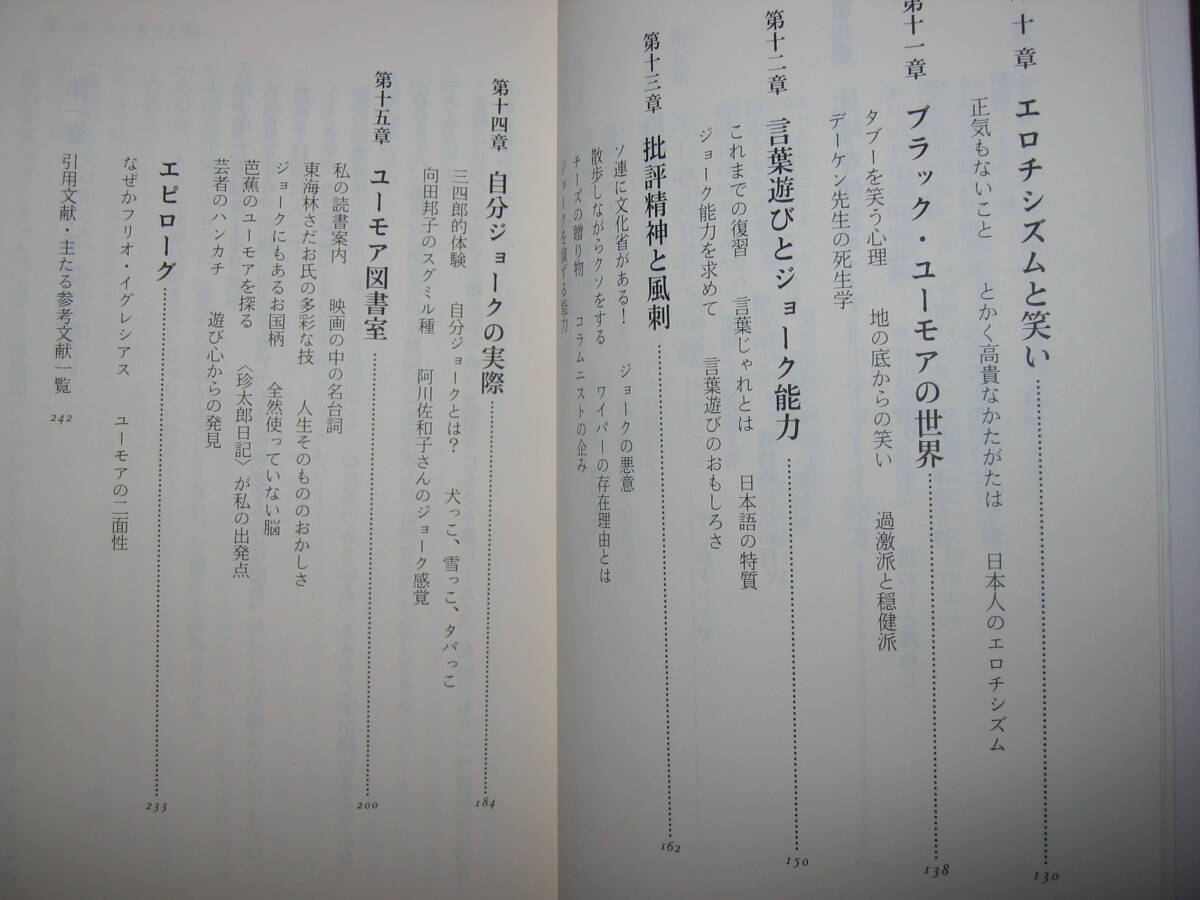 第十章 エロチシズムと笑い 130
正気もないこと とかく高貴なかたがたは 日本人のエロチシズム
第十一章 ブラック・ユーモアの世界 138
タブーを笑う心理 地の底からの笑い 過激派と穏健派
デーケン先生の死生学
第十二章 言葉遊びとジョーク能力 150
これまでの復習 言葉じゃれとは 日本語の特質
ジョーク能力を求めて 言葉遊びのおもしろさ
第十三章 批評精神と風刺 162
ソ連に文化省がある! ジョークの悪意
散歩しながらクソをする ワイパーの存在理由とは
チーズの贈り物 コラムニストの企み
ジョークを演ずる能力
第十四章 自分ジョークの実際 184
三四郎的体験 自分ジョークとは? 犬っこ、雪っこ、タバっこ
向田邦子のスグミル種 阿川佐和子さんのジョーク感覚
第十五章 ユーモア図書室 200
私の読書案内 映画の中の名台詞
東海林さだお氏の多彩な技 人生そのもののおかしさ
ジョークにもあるお国柄 全然使っていない脳
芭蕉のユーモアを探る 〈珍太郎日記〉が私の出発点
芸者のハンカチ 遊び心からの発見
エピローグ 233
なぜかフリオ・イグレシアス ユーモアの二面性
引用文献・主たる参考文献一覧 242